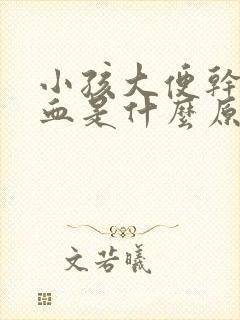 小孩大便幹
血是什麼原
文若曦